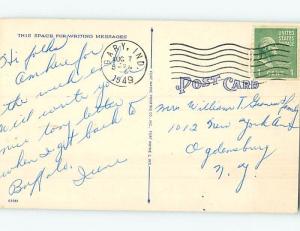 THIS SPACE FOR WRITING MESSAGES
Hi folks
Am here for
the week end
will write you
nice long letter
when I get back to
Buffalo.
Irene
GARY, IND.
AUG 7
1949
POST CARD
Mrs William T. & family
1012 New York Ave
Ogdensburg
N.Y.